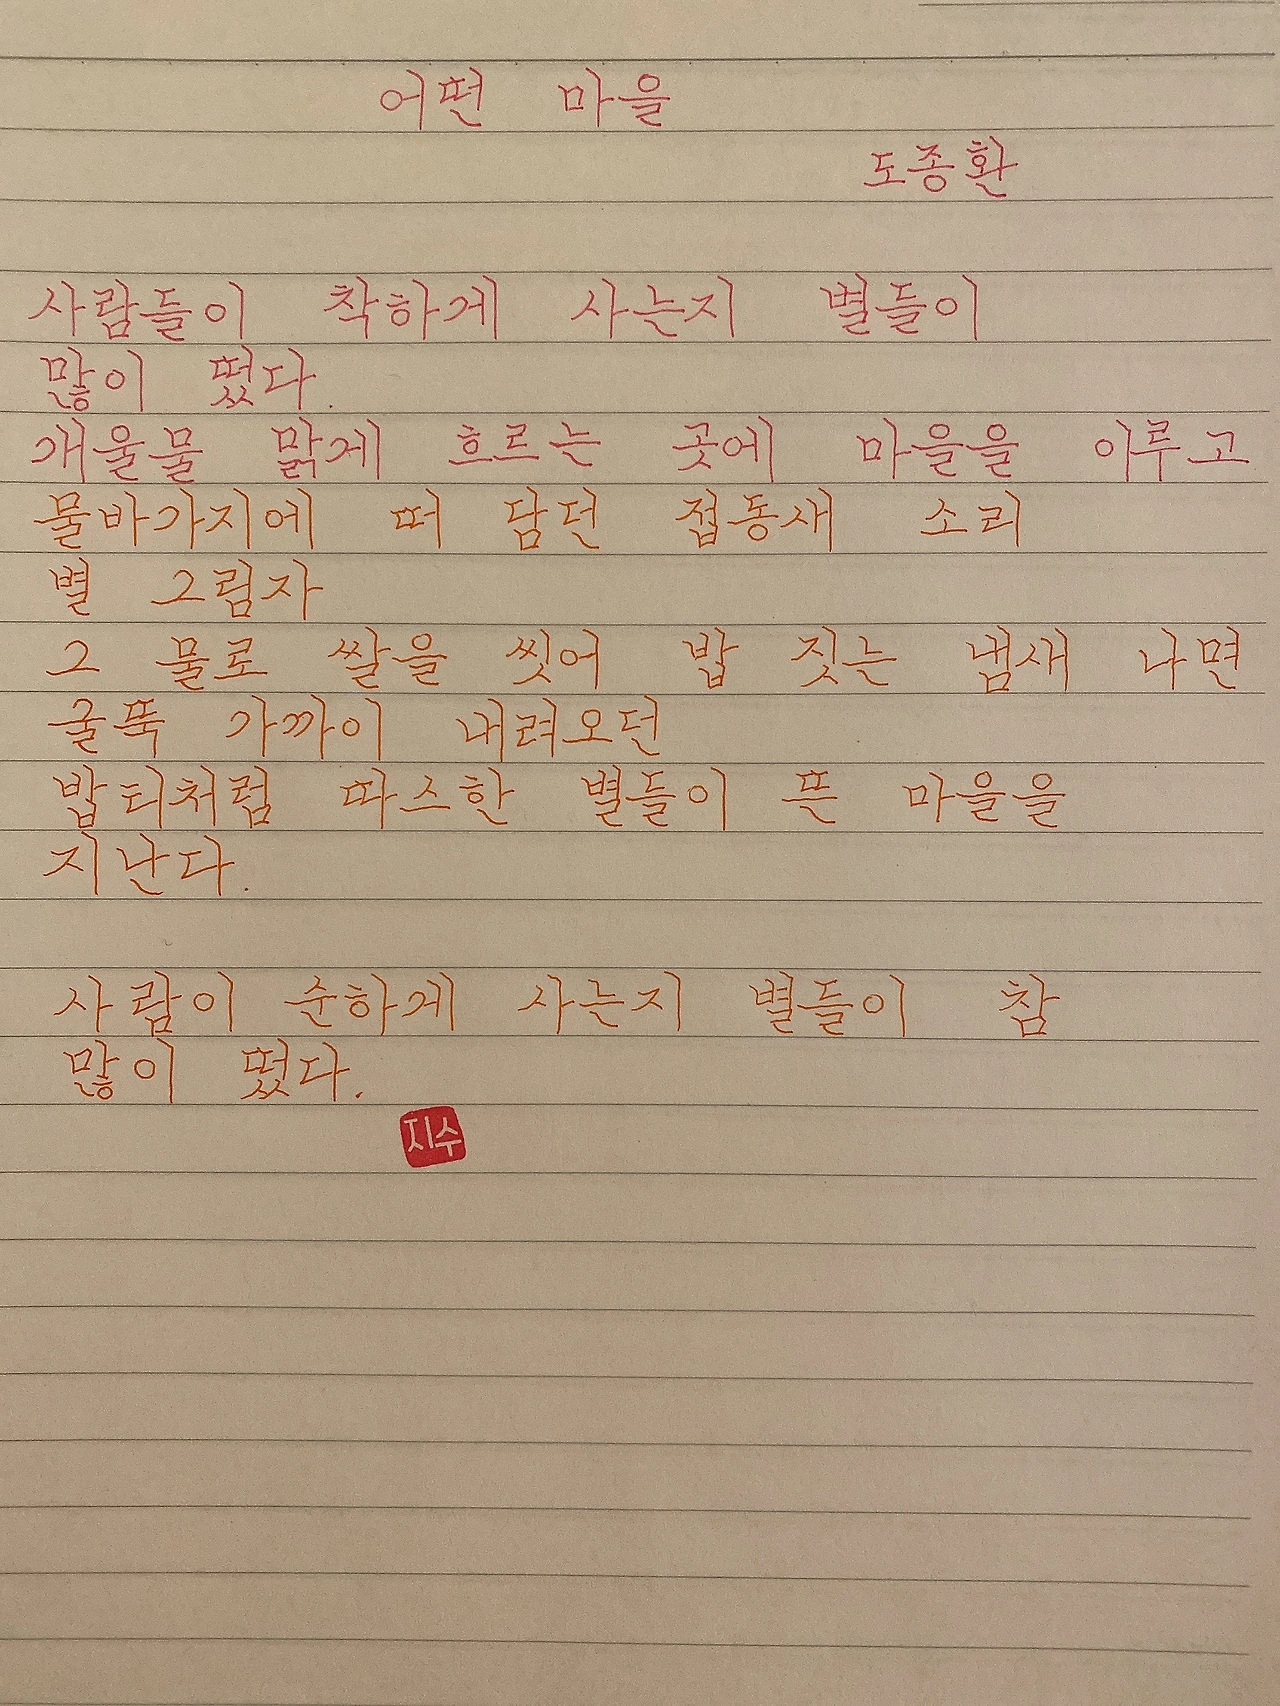 어떤 마을
도종환
사람들이 착하게 사는지 별들이
많이 떴다.
개울물 맑게 흐르는 곳에 마을을 이루고
물바가지에 떠 담던 접동새 소리
별 그림자
그 물로 쌀을 씻어 밥 짓는 냄새 나면
굴뚝 가까이 내려오던
밥티처럼 따스한 별들이 뜬 마을을
지난다.
사람이 순하게 사는지 별들이 참
많이 떴다.
지수